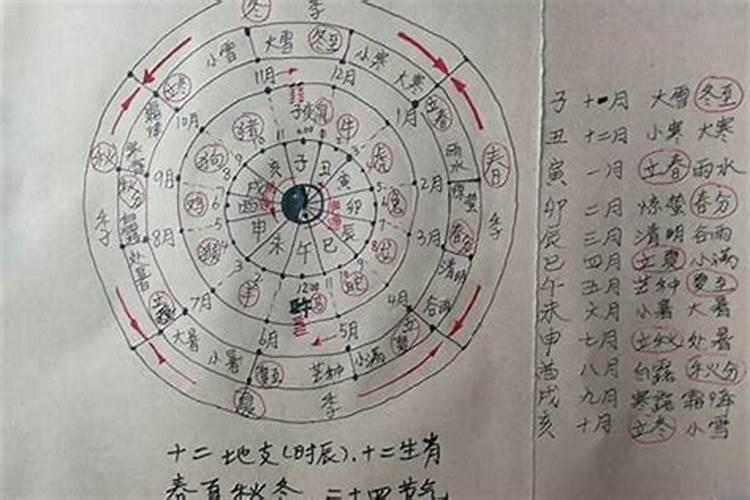 冬 季
小雪 大雪 冬至 小寒 大寒
立冬 11月 12月 立春
10月 子 鼠 1月
猪 牛
秋 狗 亥 子 丑 虎 雨水 春
秋分 9月 鸡 戌 寅 2月 惊蛰
酉 卯 兔
季 8月 猴 申 辰 龙 3月 春分 季
处暑 未 午 巳 清明
立秋 7月 羊 蛇 4月 谷雨
大暑 12:00 立夏
小暑 6月 5月 小满
夏至 芒种
夏 季
子 十一月 大雪 冬至
丑 十二月 小寒 大寒
寅 一月 立春 雨水
卯 二月 惊蛰 春分
辰 三月 清明 谷雨
巳 四月 立夏 小满
午 五月 芒种 夏至
未 六月 小暑 大暑
申 七月 立秋 处暑
酉 八月 白露 秋分
戌 九月 寒露 霜降
亥 十月 立冬 小雪
十二地支(时辰)、十二生肖
春夏秋冬 二十四节气